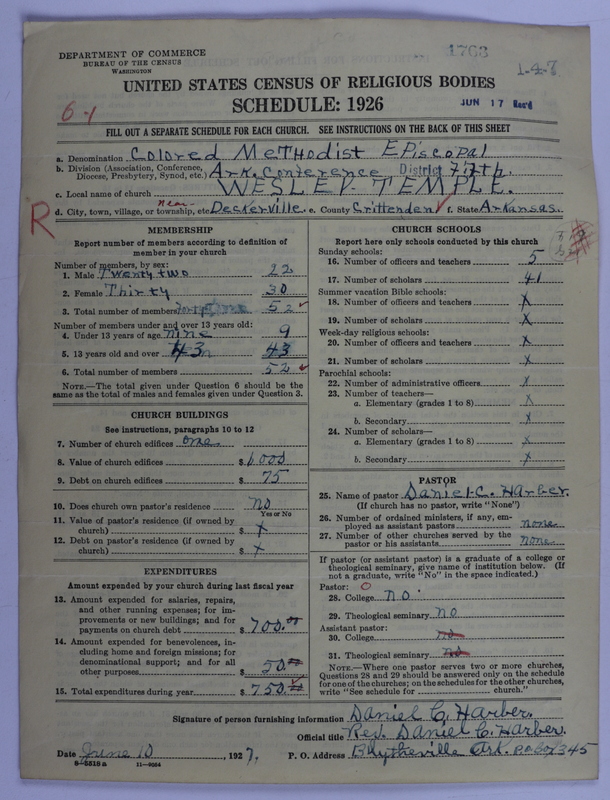 DEPARTMENT OF COMMERCE
BUREAU OF THE CENSUS
WASHINGTON
1763
1-4-7
UNITED STATES CENSUS OF RELIGIOUS BODIES
SCHEDULE: 1926
JUN 17 Rec'd
6-1
FILL OUT A SEPARATE SCHEDULE FOR EACH CHURCH. SEE INSTRUCTIONS ON THE BACK OF THIS SHEET
a. Denomination Colored Methodist Episcopal
b. Division (Association, Conference, Diocese, Presbytery, Synod, etc.) Ark. Conference District Fifth.
c. Local name of church WESLEY TEMPLE.
d. City, town, village, or township, etc. near Deckerville. e. County Crittenden f. State Arkansas.
R
MEMBERSHIP
Report number of members according to definition of
member in your church
Number of members, by sex:
1. Male Twenty two 22
2. Female Thirty 30
3. Total number of members 52
Number of members under and over 13 years old:
4. Under 13 years of age nine 9
5. 13 years old and over 43 43
6. Total number of members 52
NOTE.—The total given under Question 6 should be
same as the total of males and females given under Question 3.
CHURCH BUILDINGS
See instructions, paragraphs 10 to 12
7. Number of church edifices one
8. Value of church edifices $1,000
9. Debt on church edifices $75
10. Does church own pastor's residence no
Yes or No
11. Value of pastor's residence (if owned by
church) $ x
12. Debt on pastor's residence (if owned by
church) $ x
EXPENDITURES
Amount expended by your church during last fiscal year
13. Amount expended for salaries, repairs,
and other running expenses; for im-
provements or new buildings; and for
payments on church debt $700.00
14. Amount expended for benevolences, in-
cluding home and foreign missions; for
denominational support; and for all
other purposes $50
15. Total expenditures during year $750
CHURCH SCHOOLS
Report here only schools conducted by this church
Sunday schools:
16. Number of officers and teachers 5
17. Number of scholars 41
Summer vacation Bible schools:
18. Number of officers and teachers x
19. Number of scholars x
Week-day religious schools:
20. Number of officers and teachers x
21. Number of scholars x
Parochial schools:
22. Number of administrative officers x
23. Number of teachers—
a. Elementary (grades 1 to 8) x
b. Secondary x
24. Number of scholars—
a. Elementary (grades 1 to 8) x
b. Secondary x
PASTOR
25. Name of pastor Daniel C. Harber.
(If church has no pastor, write "None")
26. Number of ordained ministers, if any, em-
ployed as assistant pastors none
27. Number of other churches served by the
pastor or his assistants none
If pastor (or assistant pastor) is a graduate of a college or
theological seminary, give name of institution below. (If
not a graduate, write "No" in the space indicated.)
Pastor: 0
28. College no
29. Theological seminary no
Assistant pastor:
30. College no
31. Theological seminary no
NOTE.—Where one pastor serves two or more churches,
Questions 28 and 29 should be answered only on the schedule
for one of the churches; on the schedules for the other churches,
write "See schedule for church."
Signature of person furnishing information Daniel C. Harber.
Official title Rev. Daniel C. Harber.
Date June 10, 1927. P. O. Address Blytheville Ark. P.O. Box 345
8-5518 a 11-9084